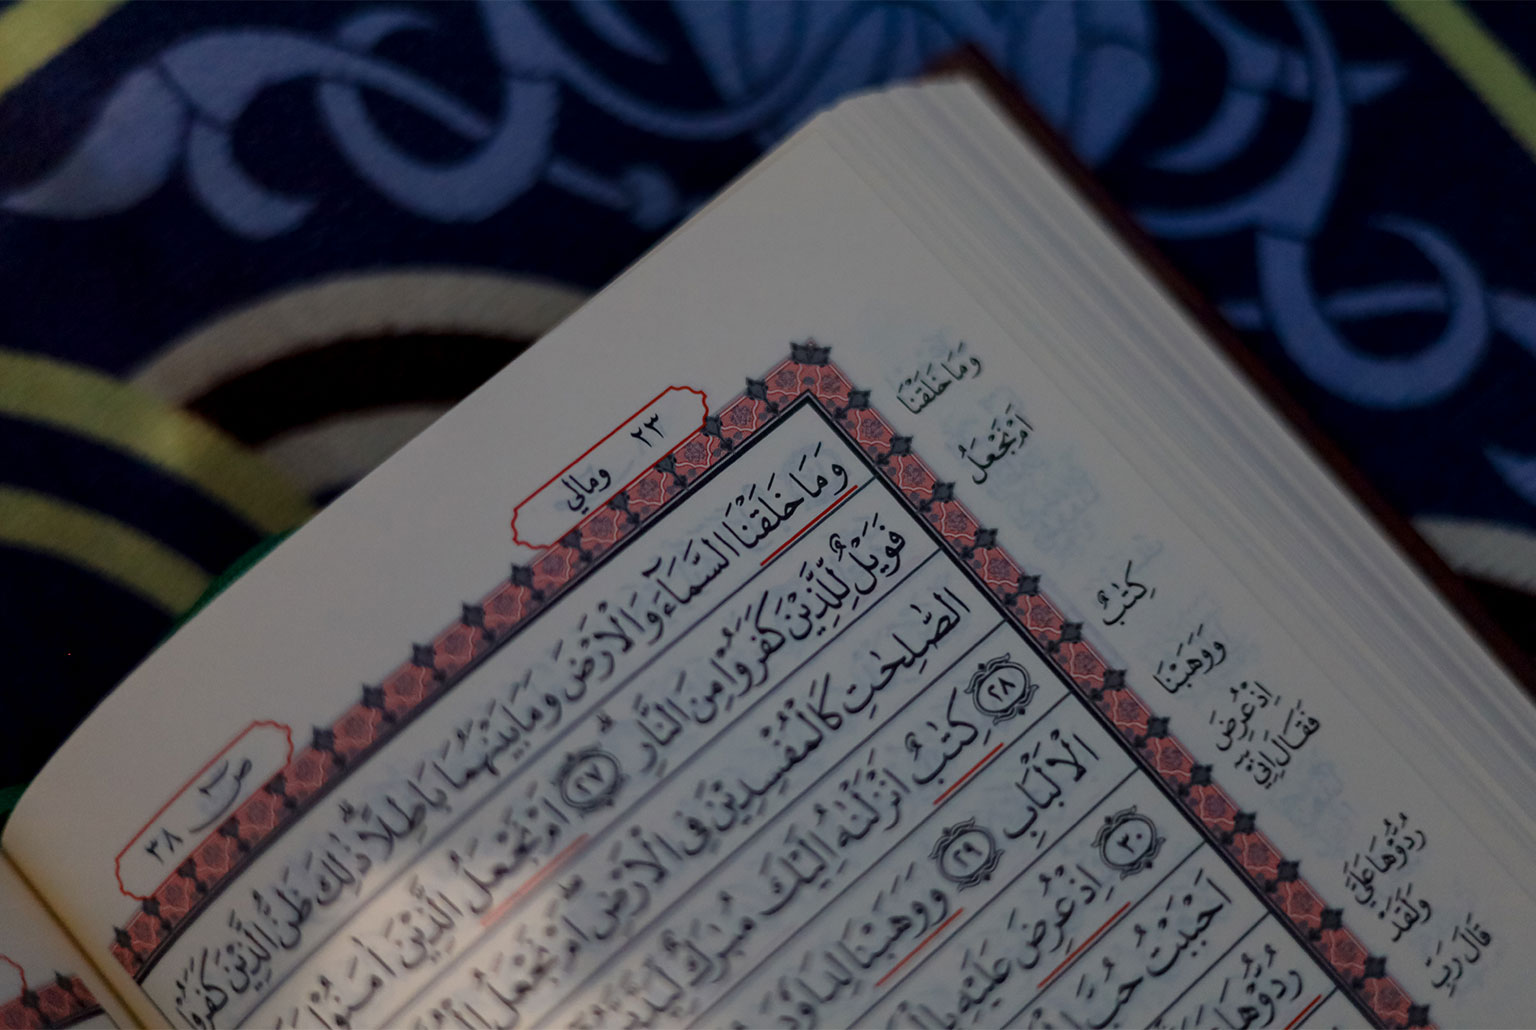 ومالي ٢٣
صٓ ٣٨
وَمَا خَلَقْنَا السَّمَآءَ وَالْاَرْضَ وَمَا بَيْنَهُمَا بَاطِلًا ؕ ذٰلِكَ ظَنُّ الَّذِيْنَ كَفَرُوْا
فَوَيْلٌ لِّلَّذِيْنَ كَفَرُوْا مِنَ النَّارِ ؕ ﴿٢٧﴾ اَمْ نَجْعَلُ الَّذِيْنَ اٰمَنُوْا
الصّٰلِحٰتِ كَالْمُفْسِدِيْنَ فِى الْاَرْضِ اَمْ نَجْعَلُ
﴿٢٨﴾ كِتٰبٌ اَنْزَلْنٰهُ اِلَيْكَ مُبٰرَكٌ
الْاَلْبَابِ ﴿٢٩﴾ وَوَهَبْنَا لِدَاوٗدَ
﴿٣٠﴾ اِذْ عُرِضَ عَلَيْهِ
اَحْبَبْتُ حُبَّ
رُدُّوْهَا
وَمَا خَلَقْنَا
اَمْ نَجْعَلُ
كِتٰبٌ
وَوَهَبْنَا
اِذْ عُرِضَ
فَقَالَ اِنِّيْٓ
رُدُّوْهَا عَلَيَّ
وَلَقَدْ
قَالَ رَبِّ